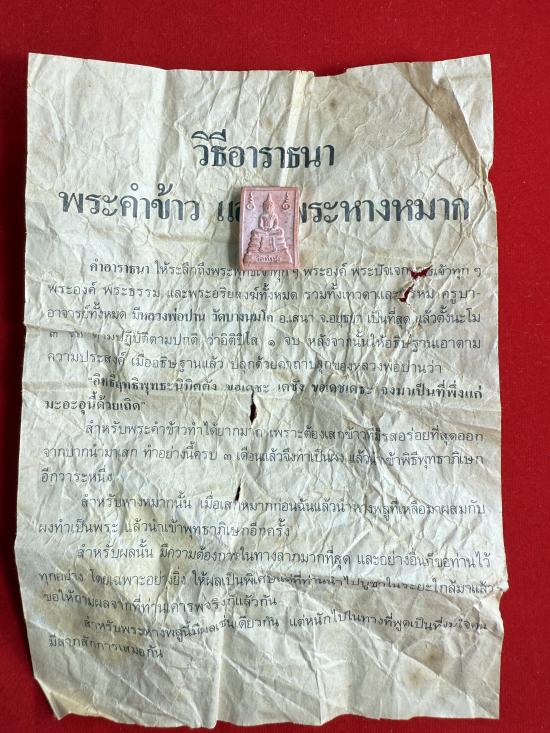 วิธีอาราธนา
พระคำข้าว และพระหางหมาก
คำอาราธนา ให้ระลึกถึงพระพุทธเจ้าทุก ๆ พระองค์ พระปัจเจกพุทธเจ้าทุก ๆ
พระองค์ พระธรรม และพระอริยสงฆ์ทั้งหมด รวมทั้งเทวดาและพรหม ครูบา-
อาจารย์ทั้งหมด มีหลวงพ่อปาน วัดบางนมโค อ.เสนา จ.อยุธยา เป็นที่สุด แล้วตั้งนะโม
๓ จบ ตามปฏิบัติตามปกติ ว่าอิติปิโส ๑ จบ หลังจากนั้นให้อธิษฐานเอาตาม
ความประสงค์ เมื่ออธิษฐานแล้ว ปลุกด้วยคาถาปลุกของหลวงพ่อปานว่า
"อิทธิฤทธิพุทธะนิมิตตัง ขอเดชะ เดชัง ขอเดชเดชะ จงมาเป็นที่พึ่งแก่
มะอะอุนี้ด้วยเถิด"
สำหรับพระคำข้าวทำได้ยากมาก เพราะต้องเสกข้าวที่มีรสอร่อยที่สุดออก
จากปากนำมาเสก ทำอย่างนี้ครบ ๓ เดือนแล้วจึงทำเป็นผง แล้วนำเข้าพิธีพุทธาภิเษก
อีกวาระหนึ่ง
สำหรับหางหมากนั้น เมื่อเสกหมากก่อนฉันแล้วนำหางพลูที่เหลือมาผสมกับ
ผงทำเป็นพระ แล้วนำเข้าพุทธาภิเษกอีกครั้ง
สำหรับผลนั้น มีความต้องการในทางลาภมากที่สุด และอย่างอื่นก็ขอท่านไว้
ทุกอย่าง โดยเฉพาะอย่างยิ่ง ให้ผลเป็นพิเศษแก่ที่ท่านนำไปบูชาในระยะใกล้มาแล้ว
ขอให้ถามผลจากที่ท่านเคารพจริงก็แล้วกัน
สำหรับพระหางพลูนี้มีผลเช่นเดียวกัน แต่หนักไปในทางที่พูดเป็นที่พอใจคน
มีลาภสักการเสมอกัน